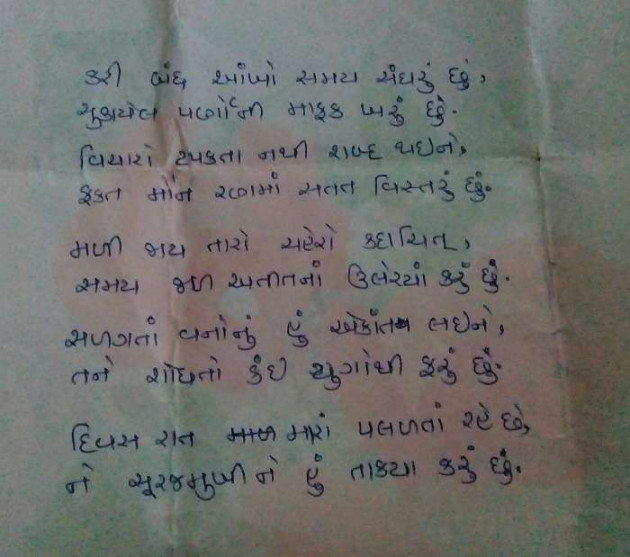 કરી બંધ આંખો સમય સંઘરું છું,
સુકાયેલ પર્ણોની માફક ખરું છું.
વિચારો ટપકતા નથી શબ્દ થઇને,
ફકત મૌન રણમાં સતત વિસ્તરું છું.
મળી જાય તારો ચહેરો કદાચિત્,
સમય જળ અતીતનાં ઉલેચ્યાં કરું છું.
સળગતાં વનોનું હું એકાંત લઇને,
તને શોધતો કંઇ યુગોથી ફરું છું.
દિવસ રાત મારાં પલળતાં રહે છે,
ને સૂરજમુખીને હું તાકયા કરું છું.